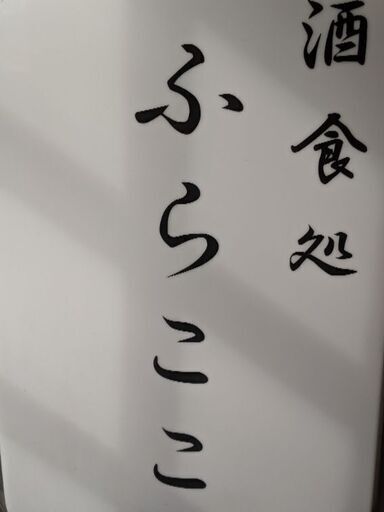 酒食処
ふらここ